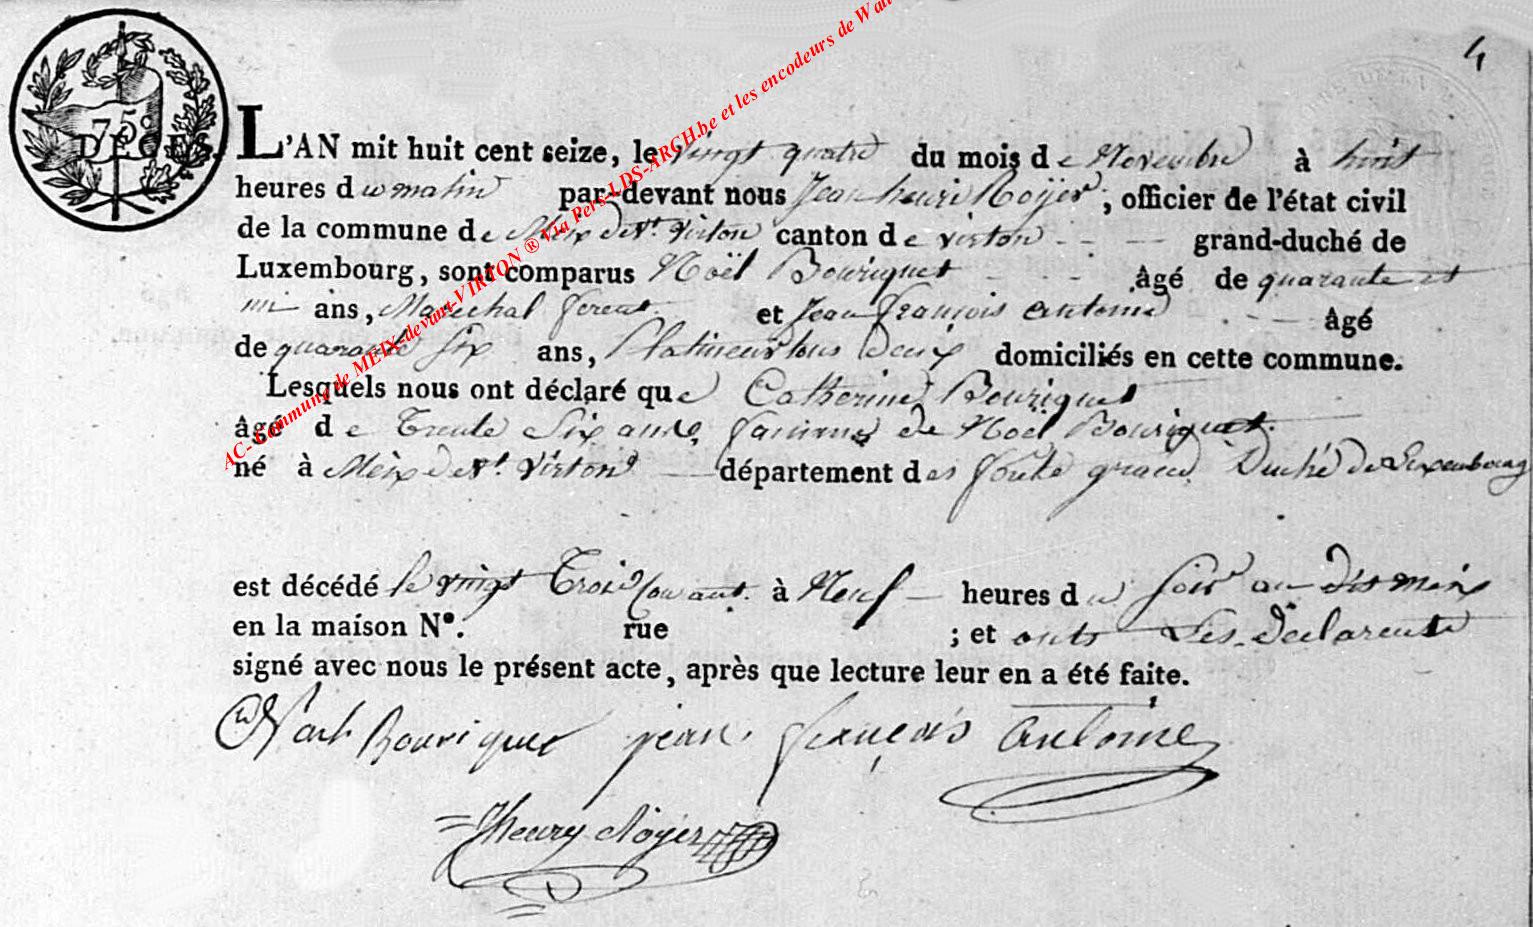 4
75 C
L'AN mil huit cent seize, le vingt quatre du mois de Novembre à huit
heures du matin par-devant nous Jean henri Roÿer ; officier de l'état civil
de la commune de Meix devt. Virton canton de virton - - grand-duché de
Luxembourg, sont comparus Noël Bouriquet - - âgé de quarante et
un ans, Marechal ferent et Jean françois antoine - - âgé
de quarante six ans, Platineur tous deux domiciliés en cette commune.
Lesquels nous ont déclaré que Catherine Bouriquet
âgé de Trente Six ans, famme de Noel Bouriquet.
né à Meix devt. Virton - département des forêt grand Duché de Luxembourg
est décédé le vingt Trois Courant. à Neuf - heures du soir au dit meix
en la maison N°. rue ; et onts Les Declarents
signé avec nous le présent acte, après que lecture leur en a été faite.
Bouriquet jean françois Antoine
Jhenry Roÿer
AC- Commune de MEIX-devant-VIRTON ® Via Pers-LDS-ARCH.be et les encodeurs de Wal